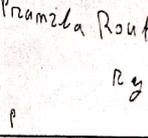 Pramila Rout
Ry
P